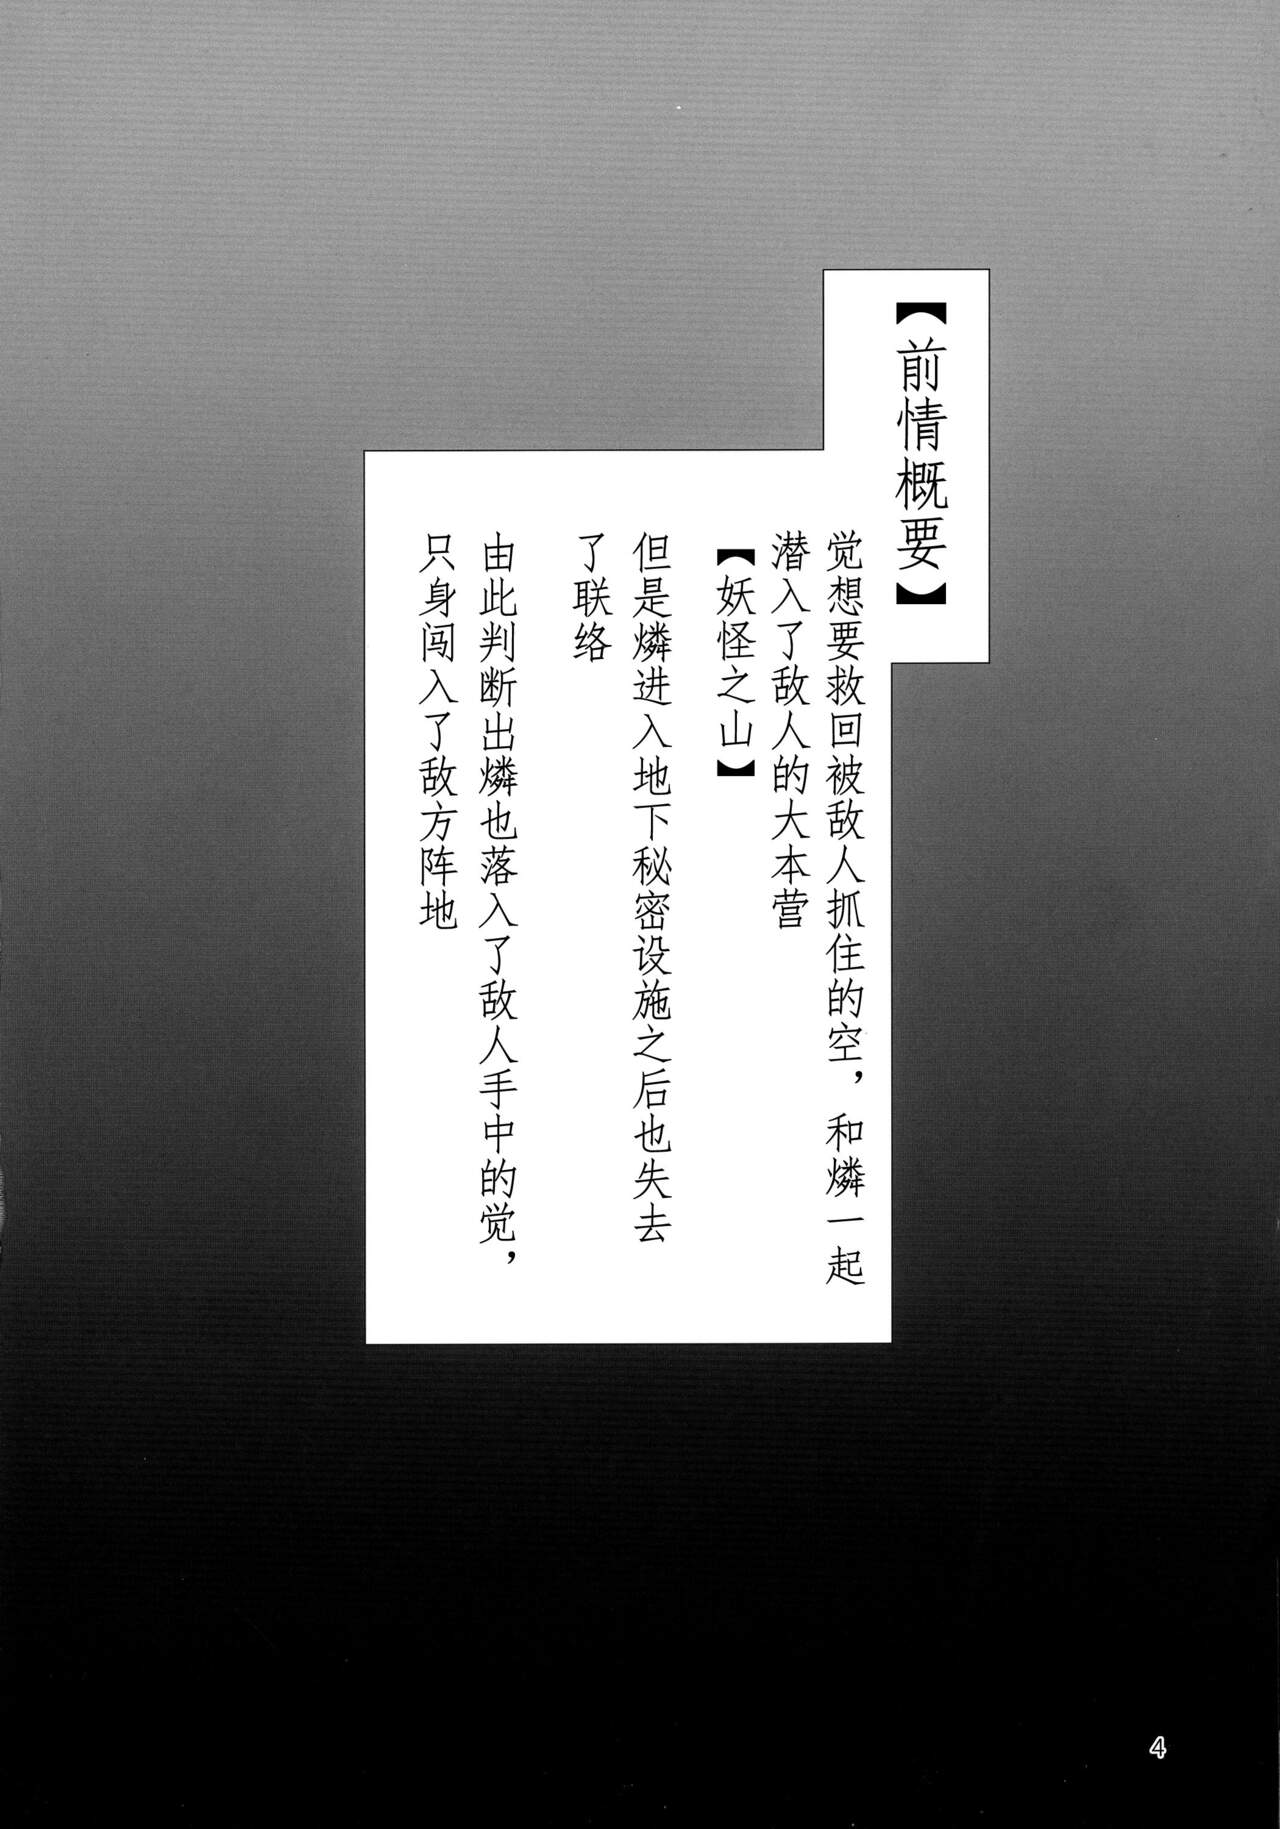 【前情概要】
觉想要救回被敌人抓住的空，和燐一起
潜入了敌人的大本营
【妖怪之山】
但是燐进入地下秘密设施之后也失去
了联络
由此判断出燐也落入了敌人手中的觉，
只身闯入了敌方阵地
4